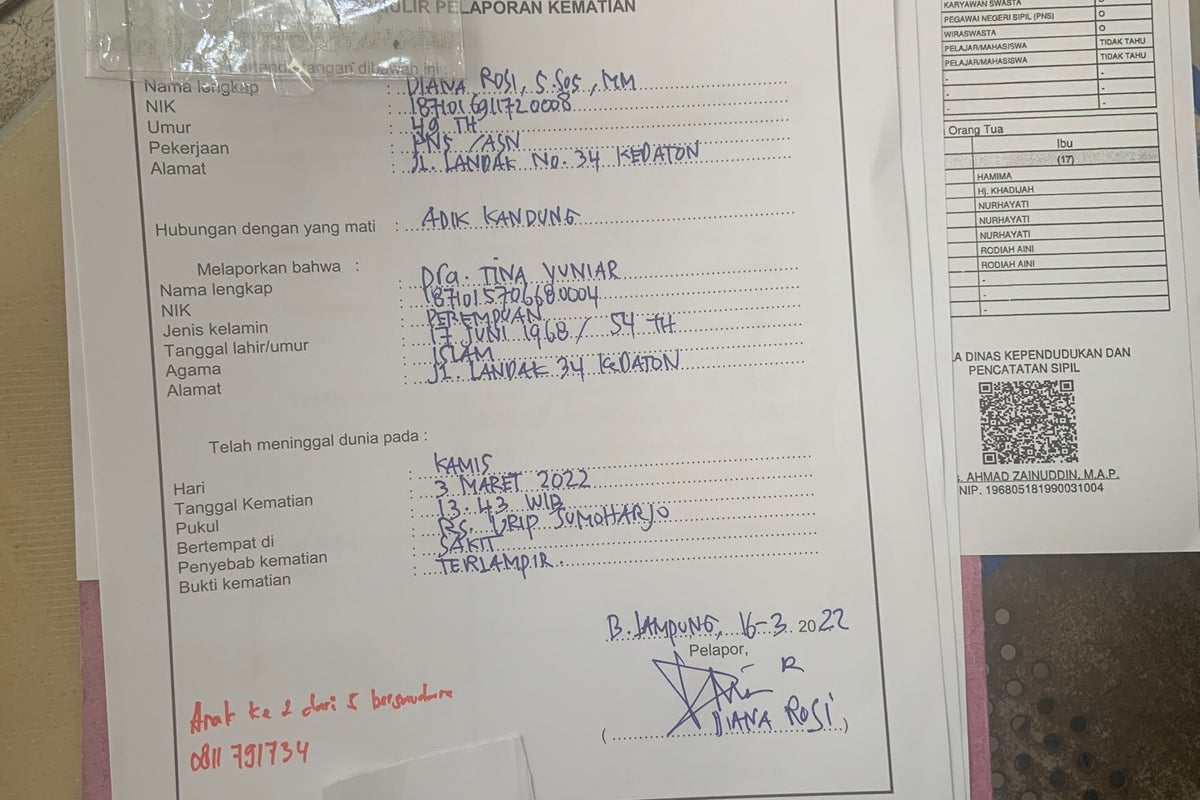 ULIR PELAPORAN KEMATIAN
ertandatangan dibawah ini :
Nama lengkap : DIANA ROSI, S.Sos, MM
NIK : 1871016911720008
Umur : 49 TH
Pekerjaan : PNS /ASN
Alamat : Jl. LANDAK No. 34 KEDATON
Hubungan dengan yang mati : ADIK KANDUNG
Melaporkan bahwa :
Nama lengkap : Dra. TINA YUNIAR
NIK : 1871015706680004
Jenis kelamin : PEREMPUAN
Tanggal lahir/umur : 17 JUNI 1968 / 54 TH
Agama : ISLAM
Alamat : Jl. LANDAK 34 KEDATON
Telah meninggal dunia pada :
Hari : KAMIS
Tanggal Kematian : 3 MARET 2022
Pukul : 13.43 WIB
Bertempat di : RS. URIP SUMOHARJO
Penyebab kematian : SAKIT
Bukti kematian : TERLAMPIR.
B. LAMPUNG, 16-3. 2022
Pelapor,
DIANA ROSI
Anak ke 2 dari 5 bersaudara
0811 791734
KARYAWAN SWASTA O
PEGAWAI NEGERI SIPIL (PNS) O
WIRASWASTA O
PELAJAR/MAHASISWA TIDAK TAHU
PELAJAR/MAHASISWA TIDAK TAHU
- -
- -
- -
Orang Tua
Ibu
(17)
HAMIMA
Hj. KHADIJAH
NURHAYATI
NURHAYATI
NURHAYATI
RODIAH AINI
RODIAH AINI
-
-
-
A DINAS KEPENDUDUKAN DAN
PENCATATAN SIPIL
. AHMAD ZAINUDDIN, M.A.P.
NIP. 196805181990031004